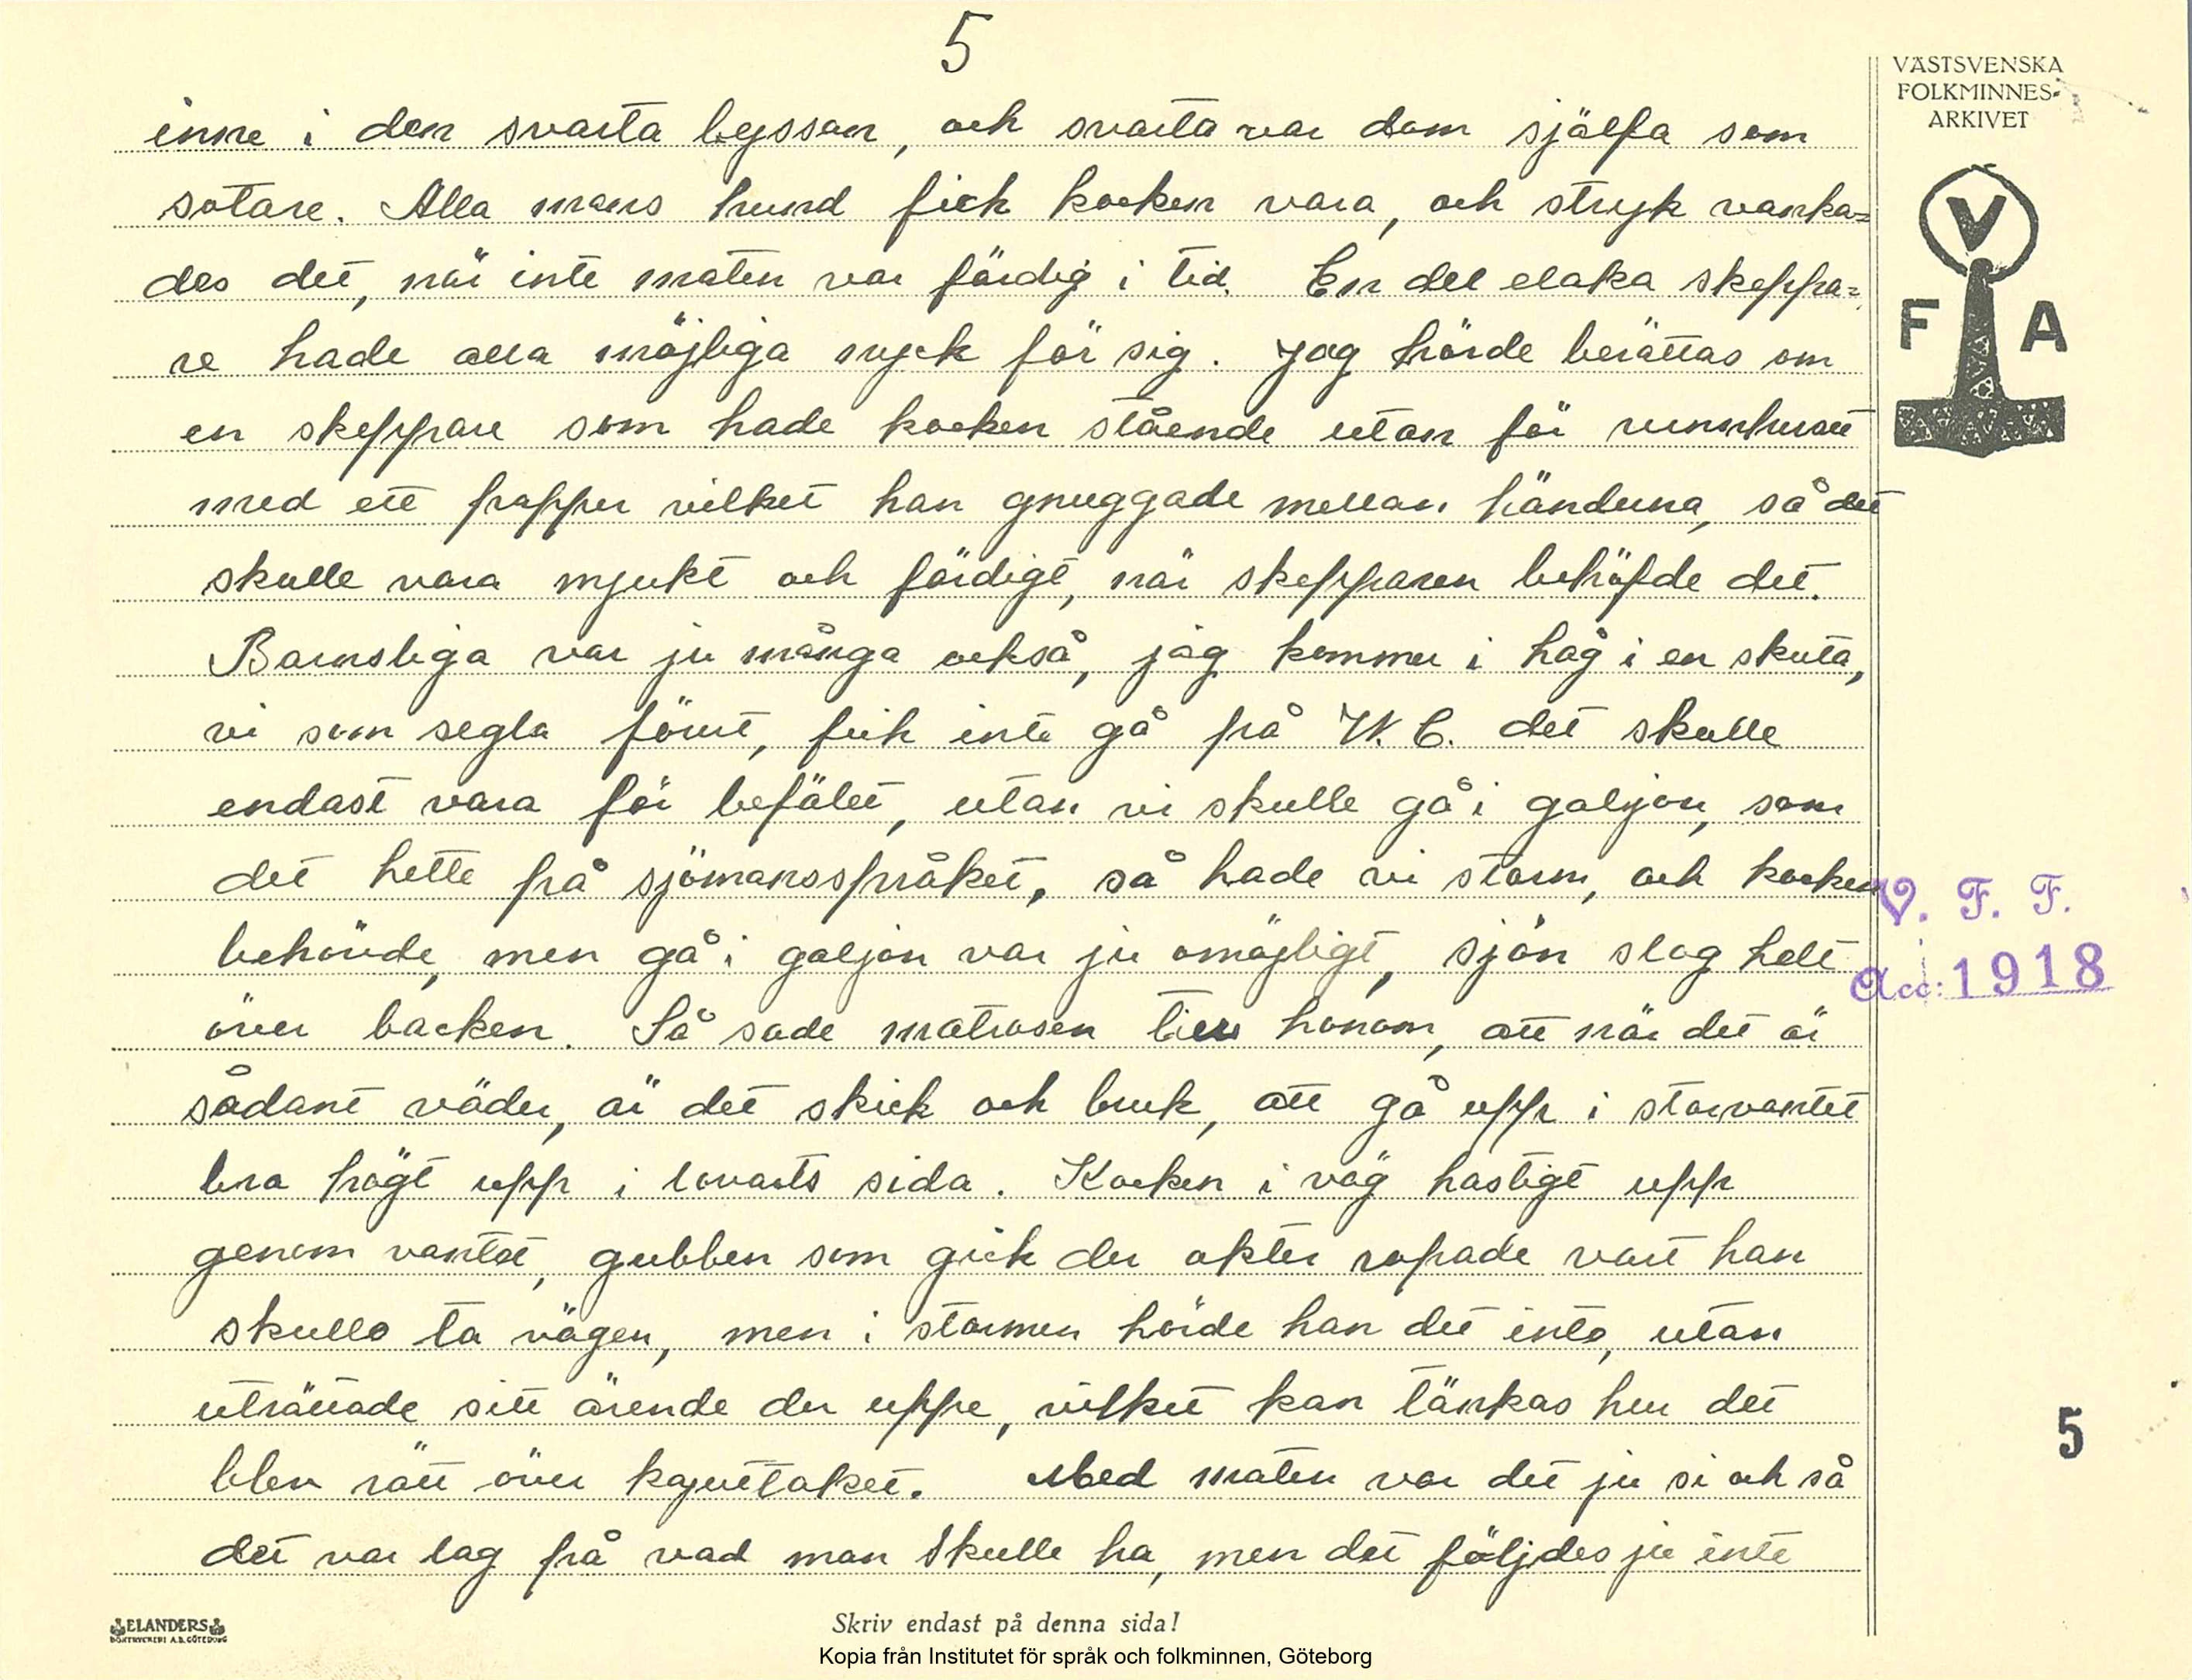 5
VÄSTSVENSKA
FOLKMINNES-
ARKIVET
V
F A
inne i den svarta byssan, och svarta var dom själfa som
sotare. Alla mans hund fick kocken vara, och stryk vanka=
des det, när inte maten var färdig i tid. En del elaka skeppa=
re hade alla möjliga nyck för sig. Jag hörde berättas om
en skeppare som hade kocken stående utan för
med ett papper vilket han gnuggade mellan händerna, så det
skulle vara mjukt och färdigt, när skepparen behöfde det.
Barnsliga var ju många också, jag kommer i håg i en skuta,
vi som segla förut, fick inte gå på W.C. det skulle
endast vara för befälet, utan vi skulle gå i galijon, som
det hette på sjömansspråket, så hade vi storm, och kocken
behövde, men gå i galjon var ju omöjligt, sjön slog helt
över backen. Så sade matrosen till honom, att när det är
sådant väder, är det skick och bruk, att gå upp i storvantet
bra högt upp i lovarts sida. Kocken i väg hastigt upp
genom vantet, gubben som gick der akter ropade vart han
skulle ta vägen, men i stormen hörde han det inte, utan
uträttade sitt ärende der uppe, vilket kan tänkas hur det
blev rätt över kajuttaket. Med maten var det ju si och så
det var lag på vad man skulle ha, men det följdes ju inte
V. F. F.
Acc: 1918
5
ELANDERS
BOKTRYCKERI A.B. GÖTEBORG
Skriv endast på denna sida!
Kopia från Institutet för språk och folkminnen, Göteborg